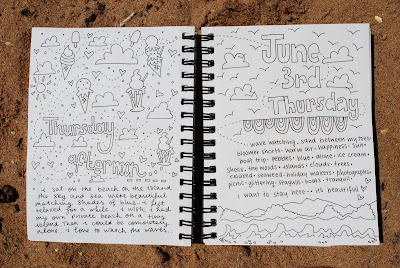 Thursday
afternoon...
I sat on the beach on the island
the sky and sea were beautiful
matching shades of blue. I felt
relaxed for a while. I wish I had
my own private beach on a tiny
island. Then I could be completely
alone. I love to watch the waves.
June
3rd
Thursday
wave watching. sand between my toes.
bloomer shorts. warm air. happiness. sun.
boat trip. pebbles. blue. alone. ice cream.
shells. the woods. islands. clouds. trees.
coloured seaweed. holiday makers. photographs.
picnic. glittering. seagulls. boats. tranquil.
I want to stay here. it's beautiful